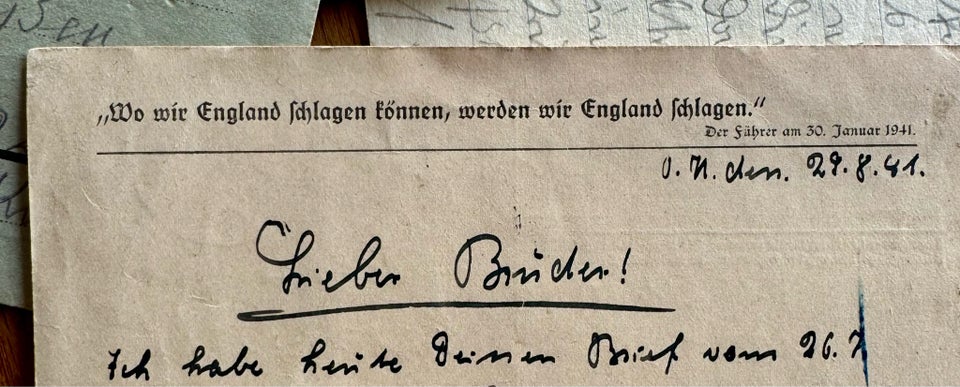 „Wo wir England schlagen können, werden wir England schlagen.“
Der Führer am 30. Januar 1941.
O. U. den. 29.8.41.
Lieber Bruder!
Ich habe heute Deinen Brief vom 26.7